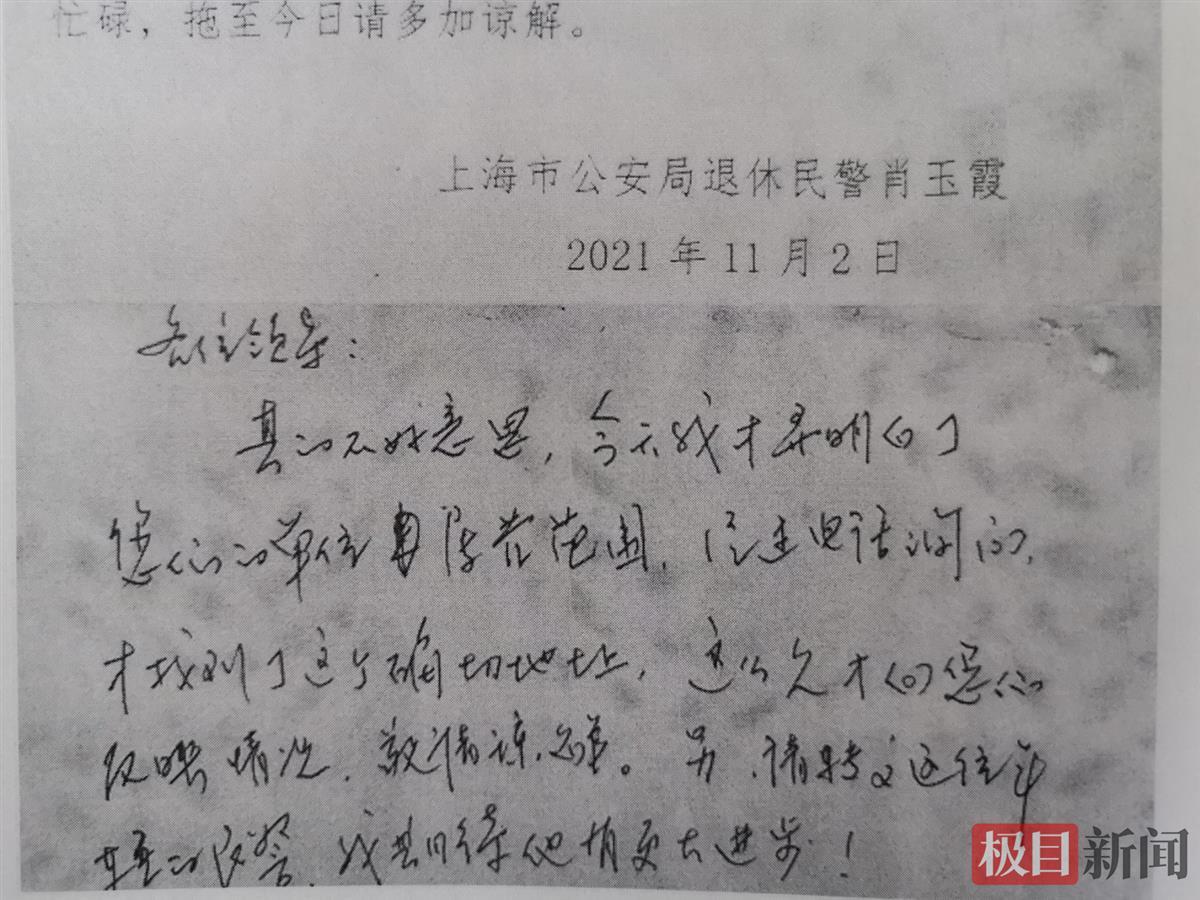 忙碌，拖至今日请多加谅解。
上海市公安局退休民警肖玉霞
2021年11月2日
各位领导：
真的不好意思，今天我才弄明白了
您们的单位 陈范围，经过电话询问，
才找到了这个确切地址，这么久才向您们
反映情况，敬请谅。另，请转交这位年
轻的民警，我期待他有更大进步！
极目新闻